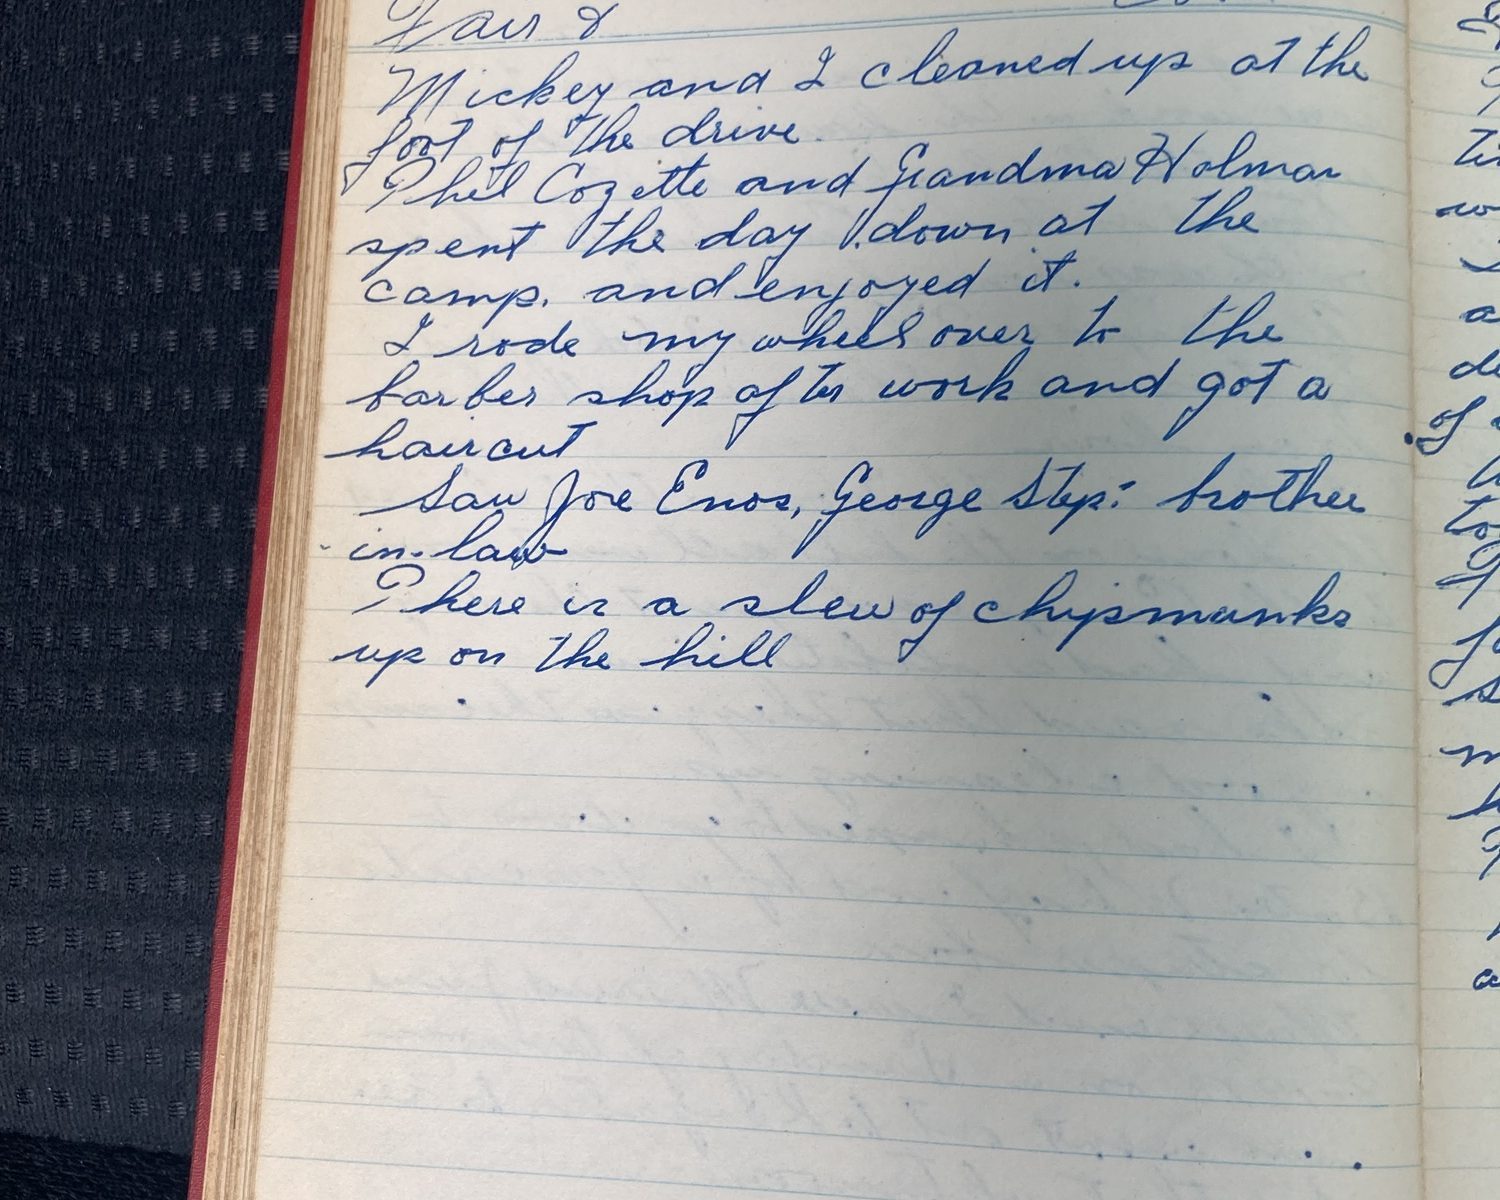 Fair &
Mickey and I cleaned up at the
foot of the drive.
Phil Cozette and Grandma Holman
spent the day down at the
camp. and enjoyed it.
I rode my wheel over to the
barber shop after work and got a
haircut
Saw Joe Enos, George Step: brother
in-law
There is a slew of chipmunks
up on the hill